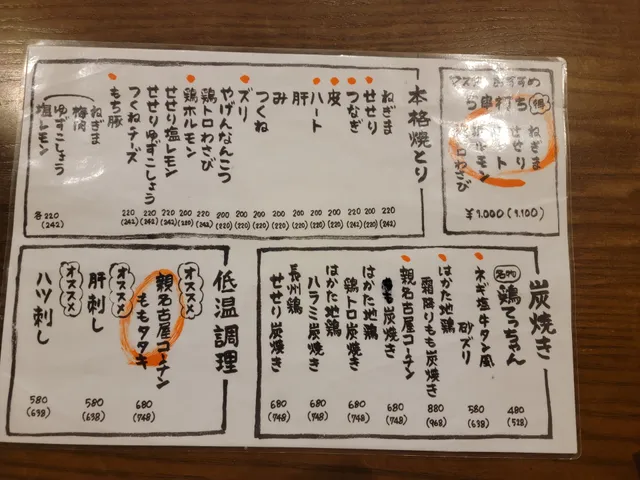 本格焼とり
ねぎま 220 (242)
せせり 200 (220)
つなぎ 220 (242)
皮 200 (220)
ハート 200 (220)
肝 200 (220)
み 200 (220)
つくね 200 (220)
ズリ 200 (220)
やげんなんこつ 200 (220)
鶏トロわさび 220 (242)
鶏ホルモン 200 (220)
せせり塩レモン 220 (242)
せせりゆずこしょう 220 (242)
つくねチーズ 220 (242)
もち豚 220 (242)
ねぎま
梅肉
ゆずこしょう
塩レモン
各220 (242)
おすすめ
5串打ち
ねぎま
せせり
ハート
鶏ホルモン
鶏トロわさび
¥1.000 (1.100)
炭焼き
名物 鶏てっちゃん 480 (528)
ネギ塩牛タン風
砂ズリ 580 (638)
はかた地鶏
霜降りもも炭焼き 880 (968)
親名古屋コーチン
もも炭焼き 680 (748)
はかた地鶏
鶏トロ炭焼き 680 (748)
はかた地鶏
ハラミ炭焼き 680 (748)
長州鶏
せせり炭焼き 680 (748)
低温調理
オススメ
親名古屋コーチン
ももタタキ 680 (748)
オススメ
肝刺し 580 (638)
オススメ
ハツ刺し 580 (638)